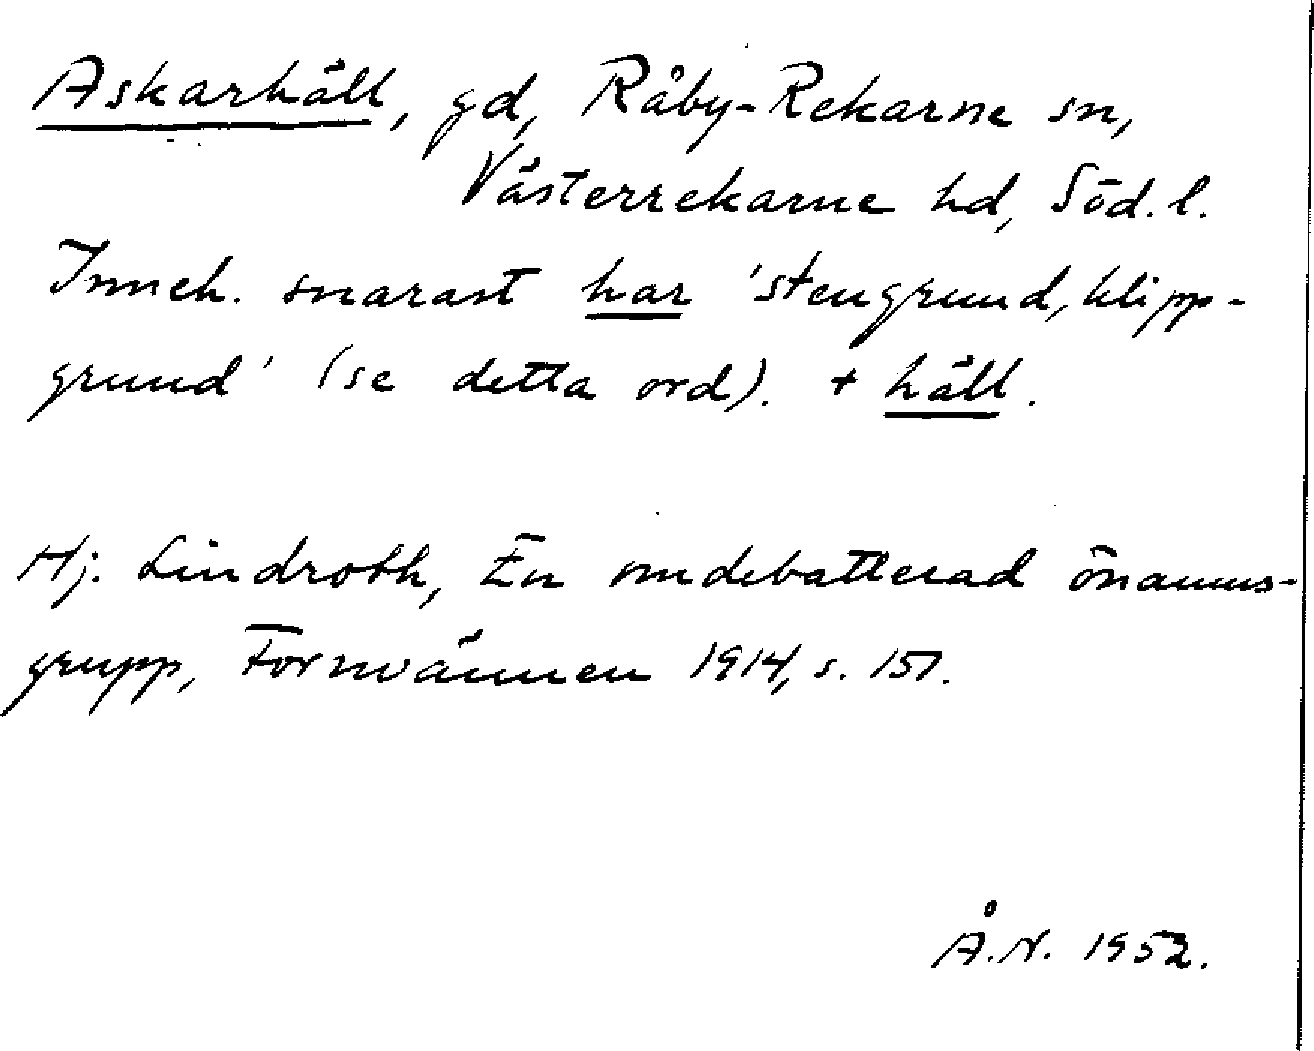 Askarhäll, gd, Råby-Rekarne sn,
Västerrekarne hd, Söd. l.
Inneh. snarast har 'stengrund, klipp-
grund' (se detta ord). + häll.
Hj. Lindroth, En omdebatterad önamns-
grupp, Fornvännen 1914, s. 151.
Å.N. 1952.